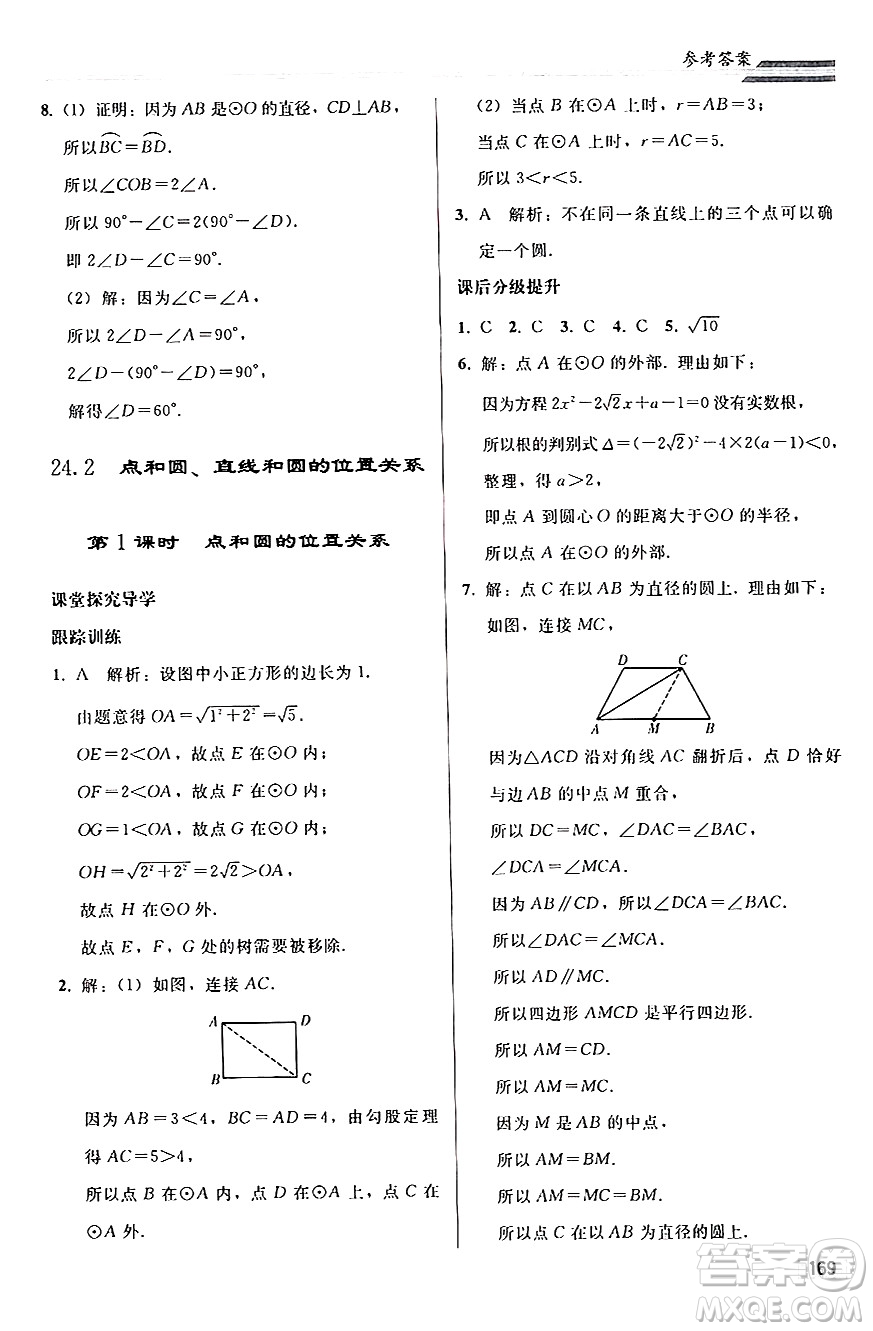 参考答案
8. (1) 证明：因为 AB 是⊙O 的直径，CD⊥AB，
所以B͡C=B͡D.
所以∠COB=2∠A.
所以 90°-∠C=2(90°-∠D).
即 2∠D-∠C=90°.
(2) 解：因为∠C=∠A，
所以 2∠D-∠C=90°，
2∠D-(90°-∠D)=90°，
解得∠D=60°.
24.2 点和圆、直线和圆的位置关系
第 1 课时 点和圆的位置关系
课堂探究导学
跟踪训练
1. A 解析：设图中小正方形的边长为 1.
由题意得 OA=√(1²+2²)=√5.
OE=2<OA，故点 E 在⊙O 内；
OF=2<OA，故点 F 在⊙O 内；
OG=1<OA，故点 G 在⊙O 内；
OH=√(2²+2²)=2√2>OA，
故点 H 在⊙O 外.
故点 E，F，G 处的树需要被移除.
2. 解：(1) 如图，连接 AC.
A D
B C
因为 AB=3<4，BC=AD=4，由勾股定理
得 AC=5>4，
所以点 B 在⊙A 内，点 D 在⊙A 上，点 C 在
⊙A 外.
(2) 当点 B 在⊙A 上时，r=AB=3；
当点 C 在⊙A 上时，r=AC=5.
所以 3<r<5.
3. A 解析：不在同一条直线上的三个点可以确
定一个圆.
课后分级提升
1. C 2. C 3. C 4. C 5. √10
6. 解：点 A 在⊙O 的外部. 理由如下：
因为方程 2x²-2√2x+a-1=0 没有实数根，
所以根的判别式 Δ=(-2√2)²-4×2(a-1)<0，
整理，得 a>2，
即点 A 到圆心 O 的距离大于⊙O 的半径，
所以点 A 在⊙O 的外部.
7. 解：点 C 在以 AB 为直径的圆上. 理由如下：
如图，连接 MC，
D C
A M B
因为△ACD 沿对角线 AC 翻折后，点 D 恰好
与边 AB 的中点 M 重合，
所以 DC=MC，∠DAC=∠BAC，
∠DCA=∠MCA.
因为 AB∥CD，所以∠DCA=∠BAC.
所以∠DAC=∠MCA.
所以 AD∥MC.
所以四边形 AMCD 是平行四边形.
所以 AM=CD.
所以 AM=MC.
因为 M 是 AB 的中点，
所以 AM=BM.
所以 AM=MC=BM.
所以点 C 在以 AB 为直径的圆上.
答案圈
MXQE.COM
169